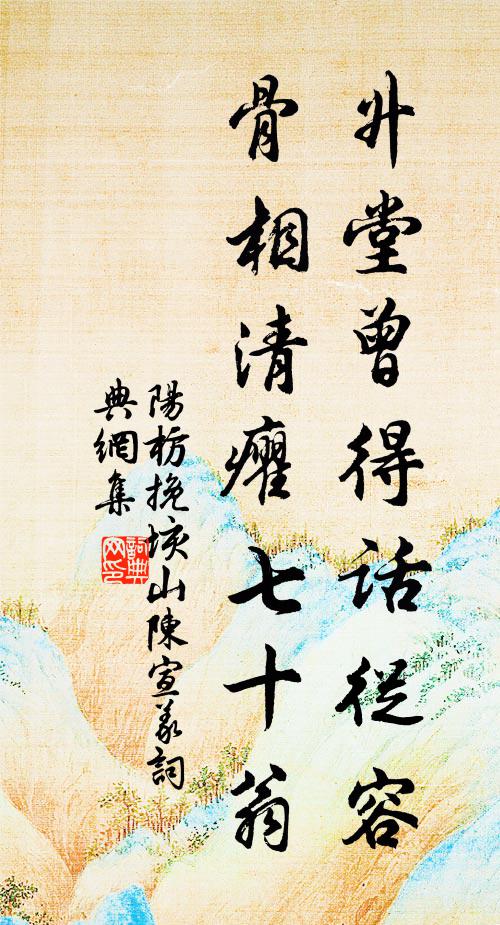 升堂曾得話從容
骨相清癯七十翁
陽枋挽垓山陳宣義詞
典網集
詞典
网印